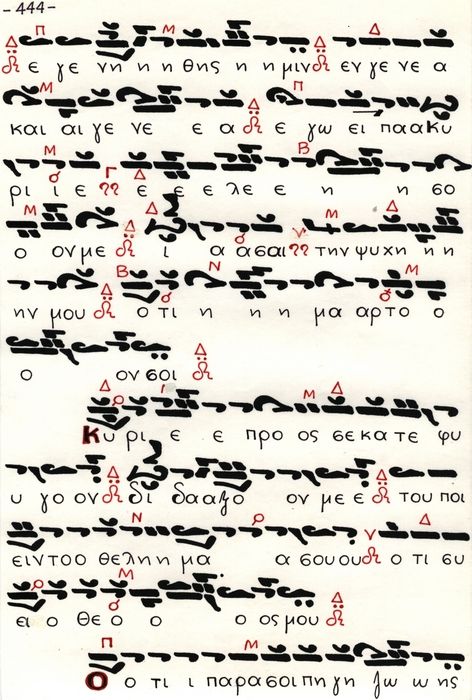 -444-
ε γε νη η η θης η η μιν εν γε νε α
και αι γε νε ε α ε γω ει πα α Κυ
ρι ι ε ε ε ε λε ε η η σο
ο ον με ι α α σαι την ψυ χη η η
ην μου ο τι η η η μα αρ το ο
ο ον σοι
Κυ ρι ε ε προ ος σε κα τε φυ
υ γο ον δι δα α ξο ον με ε του ποι
ειν το ο θε λη η μα α σου ου ο τι συ
ει ο θε ο ο ο ος μου
Ο ο τι ι πα ρα σοι πη γη ζω ω ης